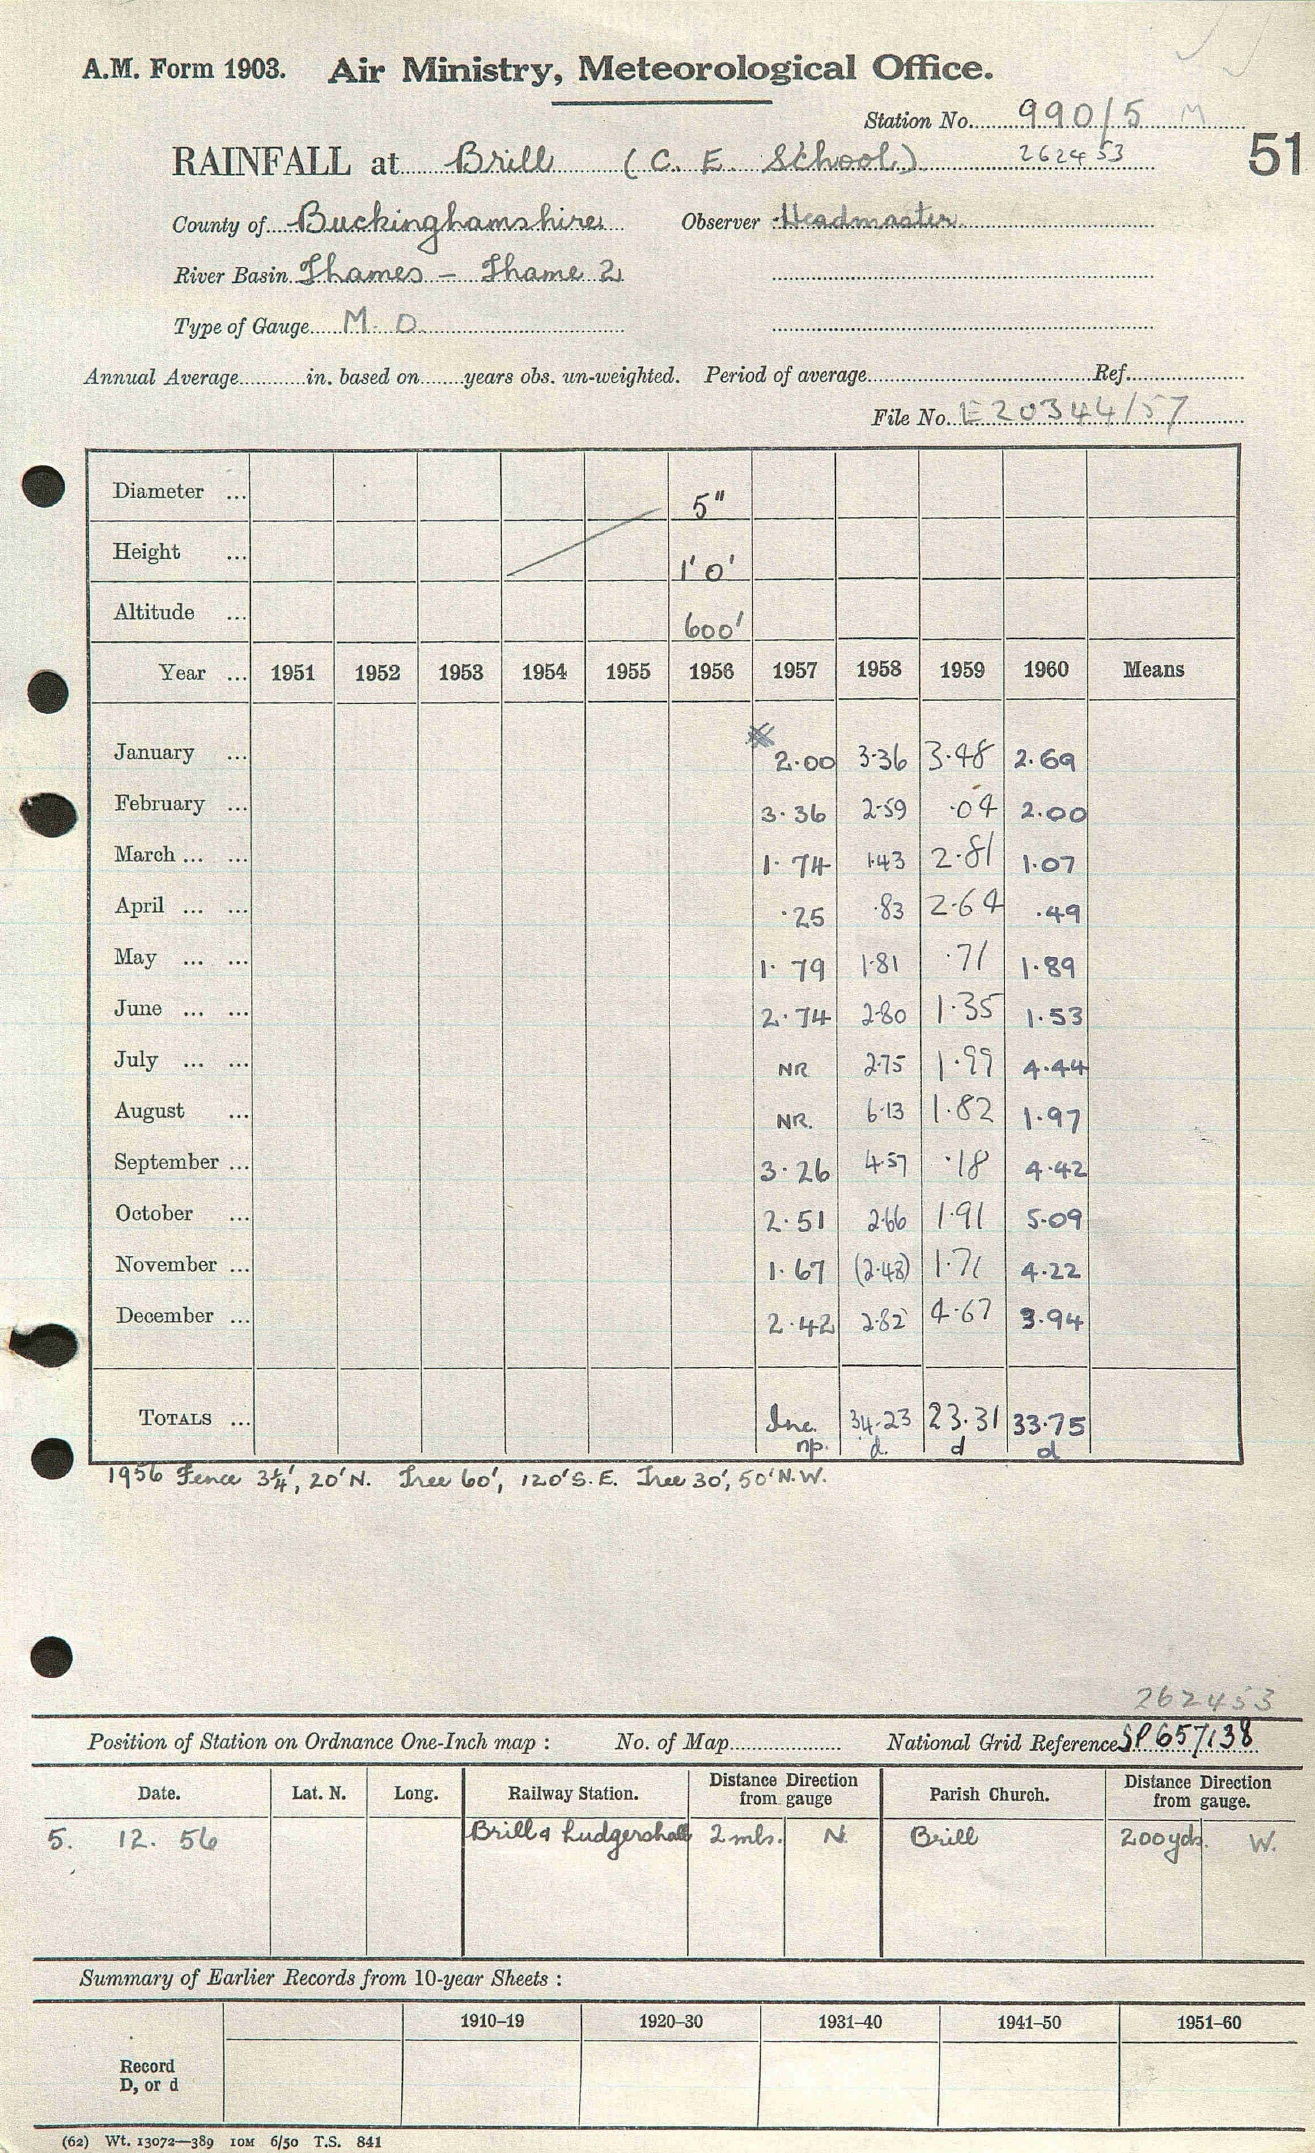 A.M. Form 1903. Air Ministry, Meteorological Office.
Station No. 990/5 M
RAINFALL at Brill (C. E. School) 262453
51
County of Buckinghamshire Observer Headmaster
River Basin Thames – Thame 2
Type of Gauge M. O.
Annual Average in. based on years obs. un-weighted. Period of average Ref.
File No. E20344/57
Diameter ... 5"
Height ... 1' 0'
Altitude ... 600'
Year ... 1951 1952 1953 1954 1955 1956 1957 1958 1959 1960 Means
January ... 2.00 3.36 3.48 2.69
February ... 3.36 2.59 .04 2.00
March ... ... 1.74 1.43 2.81 1.07
April ... ... .25 .83 2.64 .49
May ... ... 1.79 1.81 .71 1.89
June ... ... 2.74 2.80 1.35 1.53
July ... ... NR 2.75 1.99 4.44
August ... NR. 6.13 1.82 1.97
September ... 3.26 4.57 .18 4.42
October ... 2.51 2.66 1.91 5.09
November ... 1.67 (2.48) 1.71 4.22
December ... 2.42 2.82 4.67 3.94
TOTALS ... Inc. 34.23 23.31 33.75
np. d. d d
1956 Fence 3¼', 20' N. Tree 60', 120' S.E. Tree 30', 50' N.W.
262453
Position of Station on Ordnance One-Inch map : No. of Map National Grid Reference SP 657138
Date. Lat. N. Long. Railway Station. Distance Direction from gauge Parish Church. Distance Direction from gauge.
5. 12. 56 Brill & Ludgershall 2 mls. N. Brill 200 yds. W.
Summary of Earlier Records from 10-year Sheets :
1910–19 1920–30 1931–40 1941–50 1951–60
Record
D, or d
(62) Wt. 13072—389 10M 6/50 T.S. 841